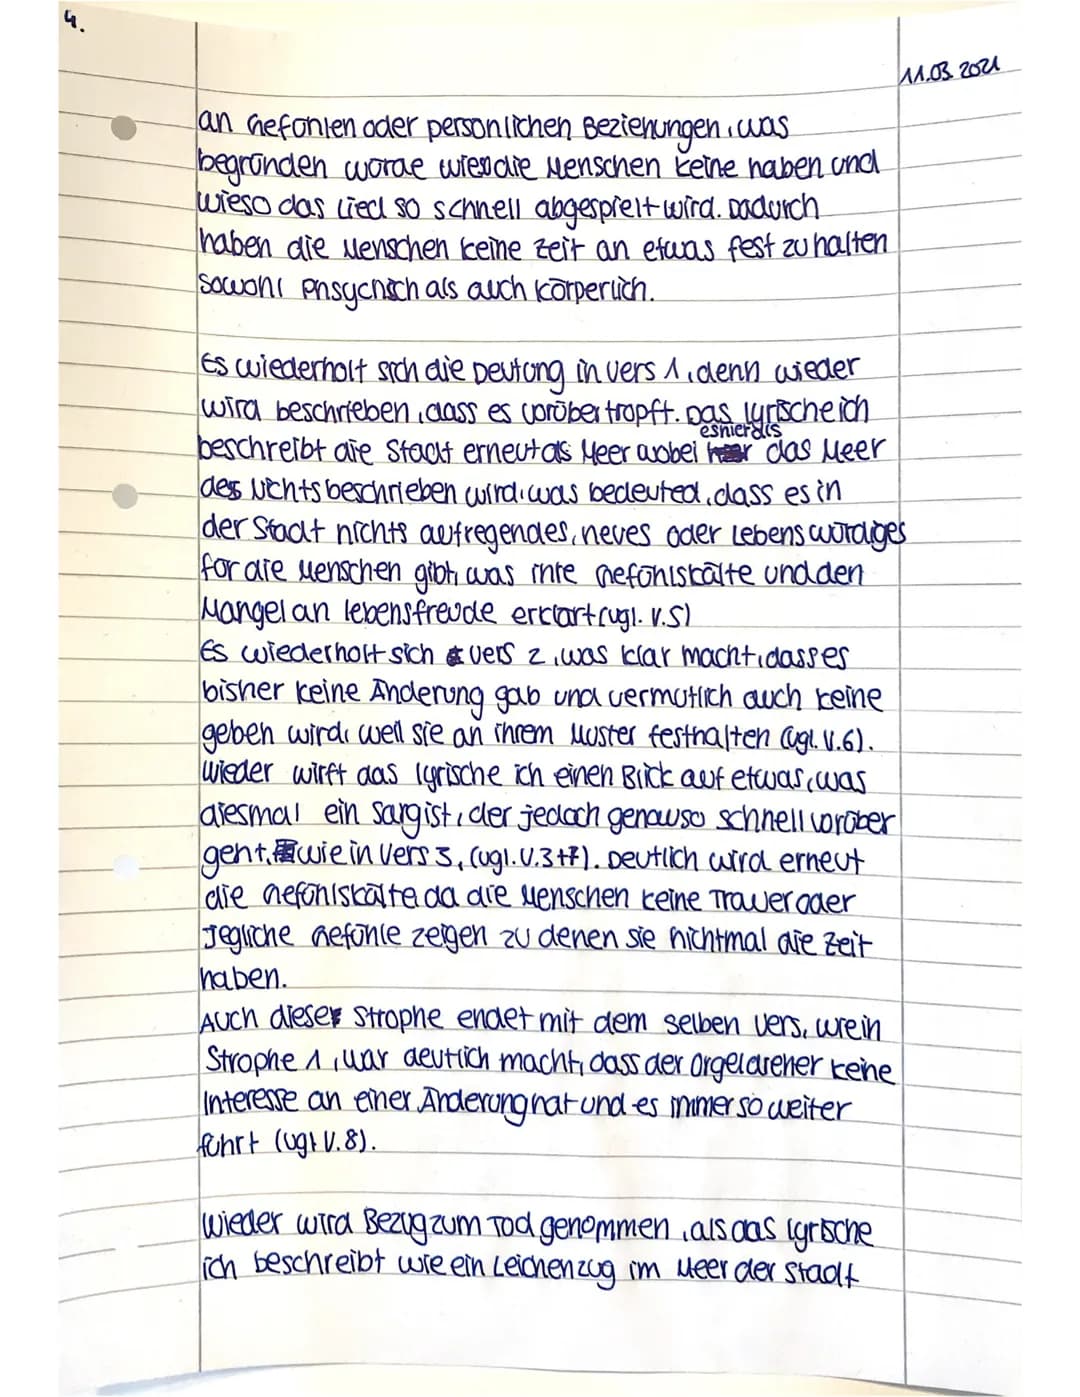 4.
11.03.2021
an Gefühlen oder persönlichen Beziehungen, was
begründen würde wieso die Menschen keine haben und
wieso das Lied so schnell abgespielt wird. Dadurch
haben die Menschen keine Zeit an etwas fest zu halten
sowohl phsychisch als auch körperlich.
Es wiederholt sich die Deutung in Vers 1, denn wieder
wird beschrieben, dass es vorüber tropft. Das lyrische ich
es hier als
beschreibt die Stadt erneut als Meer wobei das Meer
des Nichts beschrieben wird, was bedeuted, dass es in
der Stadt nichts aufregendes, neues oder Lebens würdiges
für die Menschen gibt, was ihre Gefühlskälte und den
Mangel an lebensfreude erklärt (vgl. V.5)
Es wiederholt sich Vers 2, was klar macht, dass es
bisher keine Änderung gab und vermutlich auch keine
geben wird, weil sie an ihrem Muster festhalten (vgl. V.6).
Wieder wirft das lyrische ich einen Blick auf etwas, was
diesmal ein Sarg ist, der jedoch genauso schnell vorüber
geht, wie in Vers 3, (vgl. V.3+7). Deutlich wird erneut
die Gefühlskälte, da die Menschen keine Trauer oder
Jegliche Gefühle zeigen zu denen sie nichtmal die Zeit
haben.
Auch dieser Strophe endet mit dem selben Vers, wie in
Strophe 1, war deutlich macht, dass der Orgeldreher keine
Interesse an einer Änderung hat und es immer so weiter
führt (vgl V.8).
Wieder wird Bezug zum Tod genommen, als das lyrische
ich beschreibt wie ein Leichenzug im Meer der Stadt